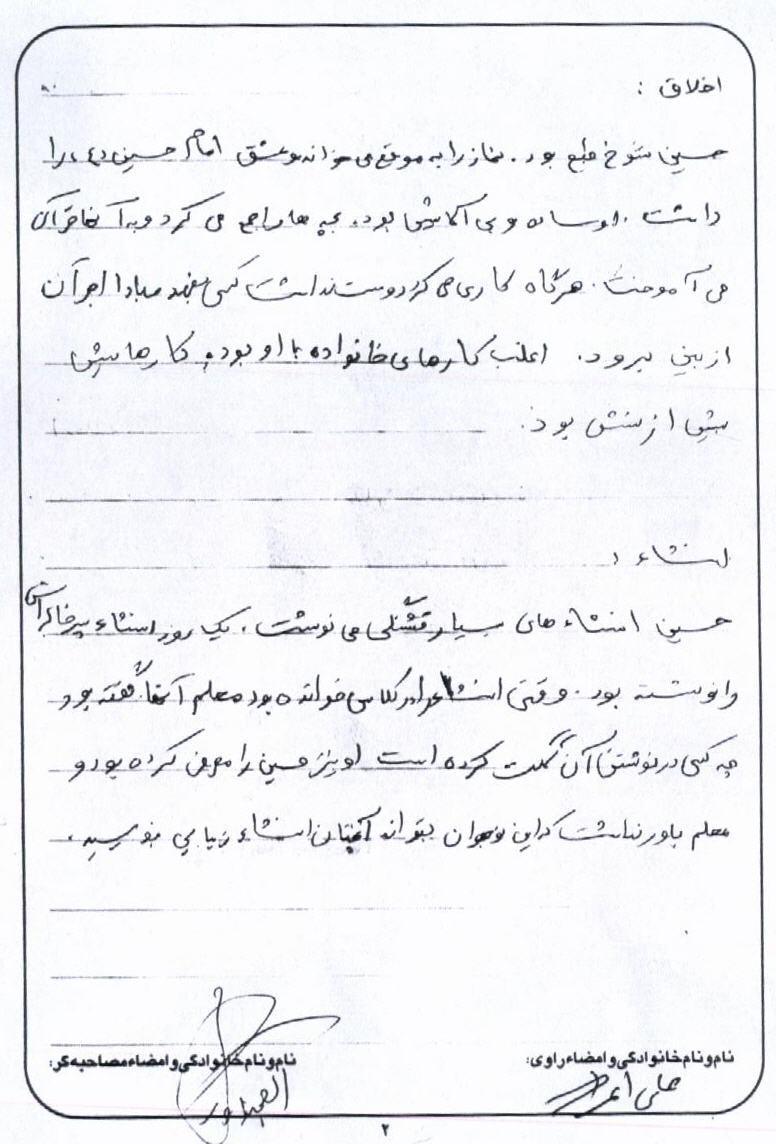 اخلاق :
حسین شوخ طبع بود. نماز را به موقع می خواند و عشق امام حسین (ع) را
داشت. او ساده و بی آلایش بود، بچه ها را جمع می کرد و به آنها قرآن
می آموخت. هرگاه کاری می کرد دوست نداشت کسی بفهمد مبادا اجر آن
از بین برود. اغلب کارهای خانواده با او بود، کارهایش
بیش از سنش بود.
انشاء :
حسین انشاء های بسیار قشنگی می نوشت، یک روز انشاء
را نوشته بود. وقتی انشاء را در کلاس خوانده بود معلم آنها گفته بود
چه کسی در نوشتن آن کمکت کرده است او نیز حسین را معرفی کرده بود و
معلم باور نداشت که این نوجوان بتواند آنچنان انشاء زیبایی بنویسد.
نام و نام خانوادگی و امضاء راوی:
نام و نام خانوادگی و امضاء مصاحبه گر:
علی
۲